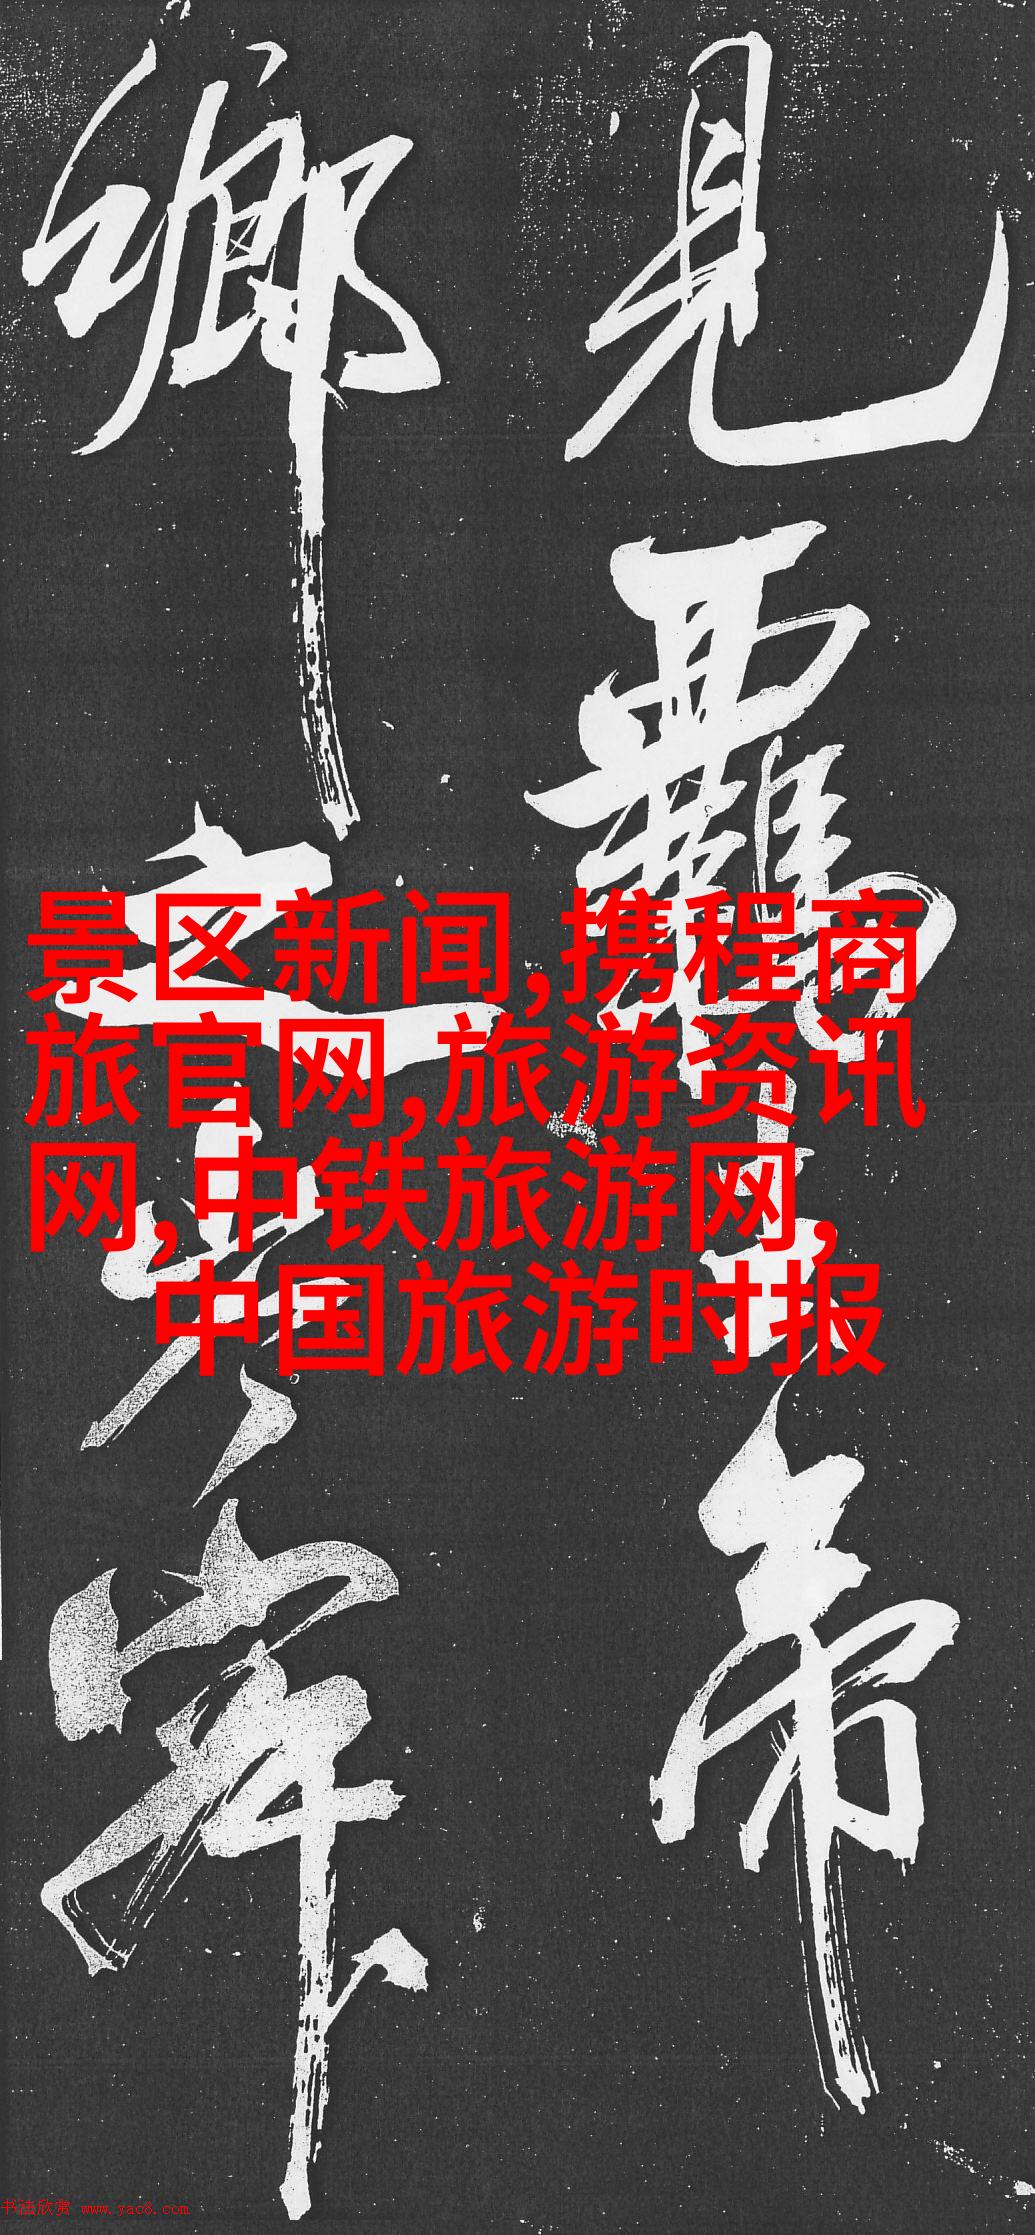 見
鄉之
景区新闻,携程商
旅官网,旅游资讯
网,中铁旅游网,
中国旅游时报
书法欣赏 www.yac8.com